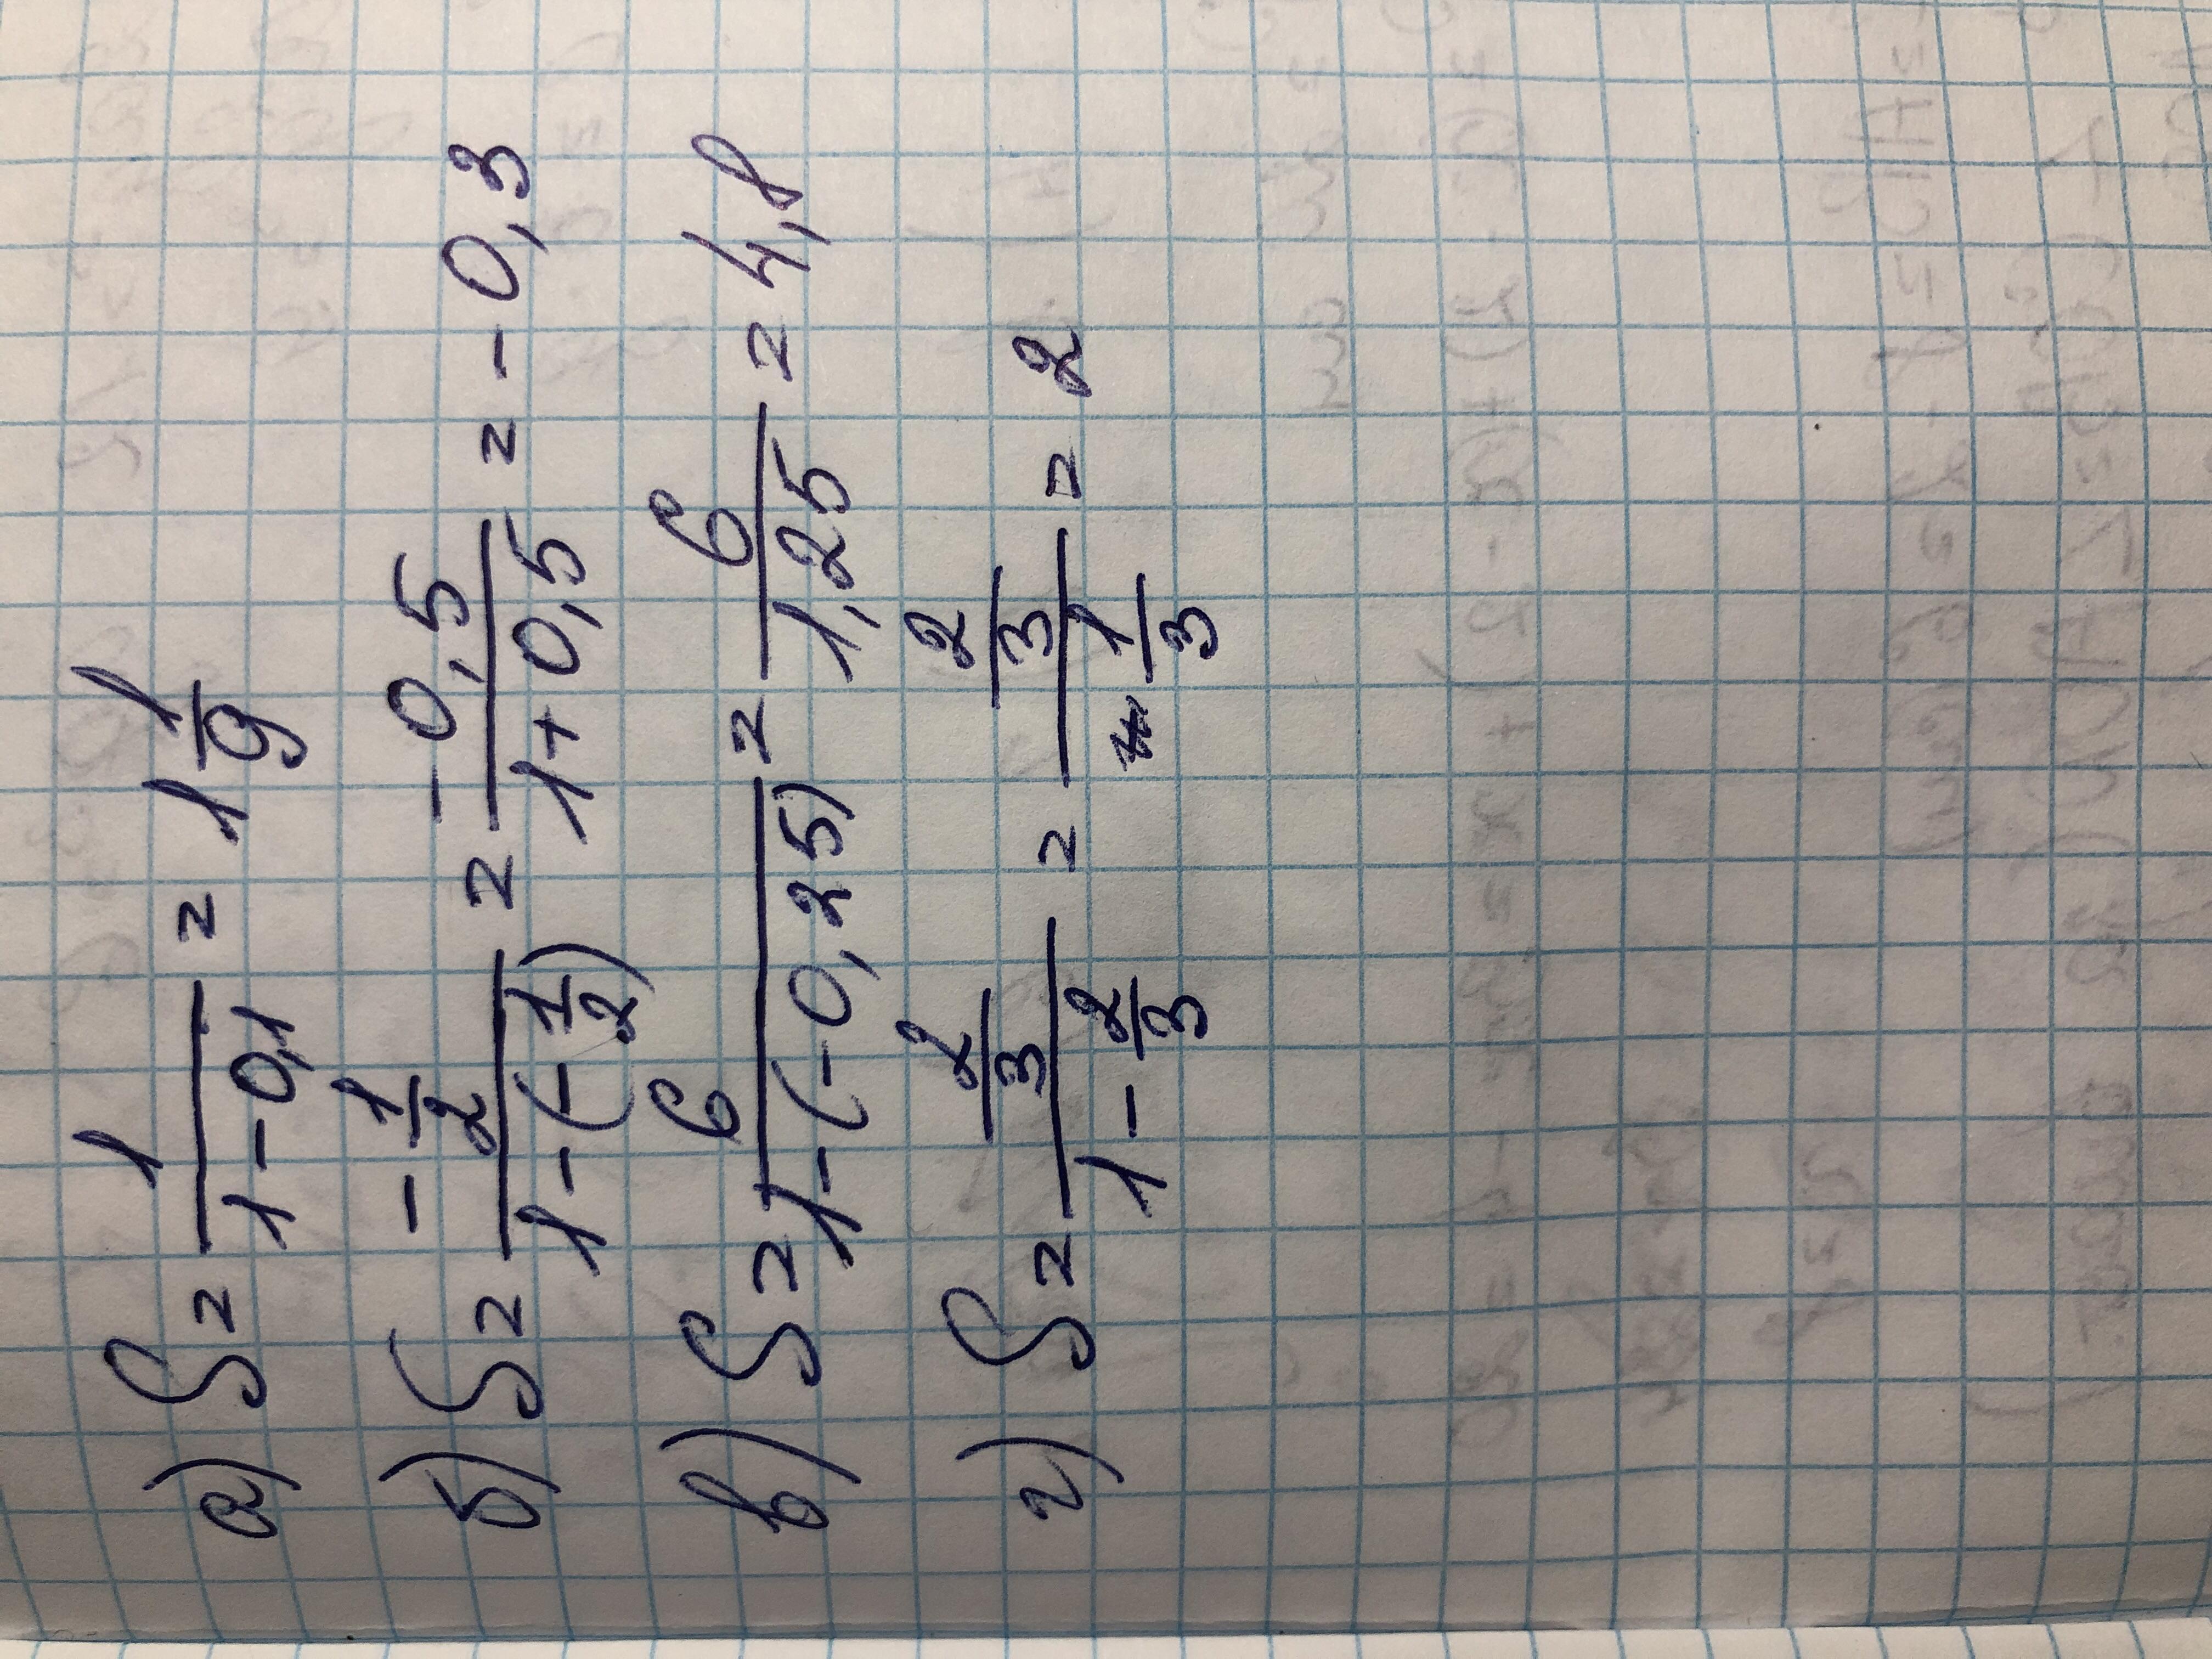 а) S = 1/(1-0,1) = 1 1/9
б) S = (-1/2)/(1-(-1/2)) = (-0,5)/(1+0,5) = -0,3
в) S = 6/(1-(-0,25)) = 6/1,25 = 4,8
г) S = (2/3)/(1-2/3) = (2/3)/(1/3) = 2